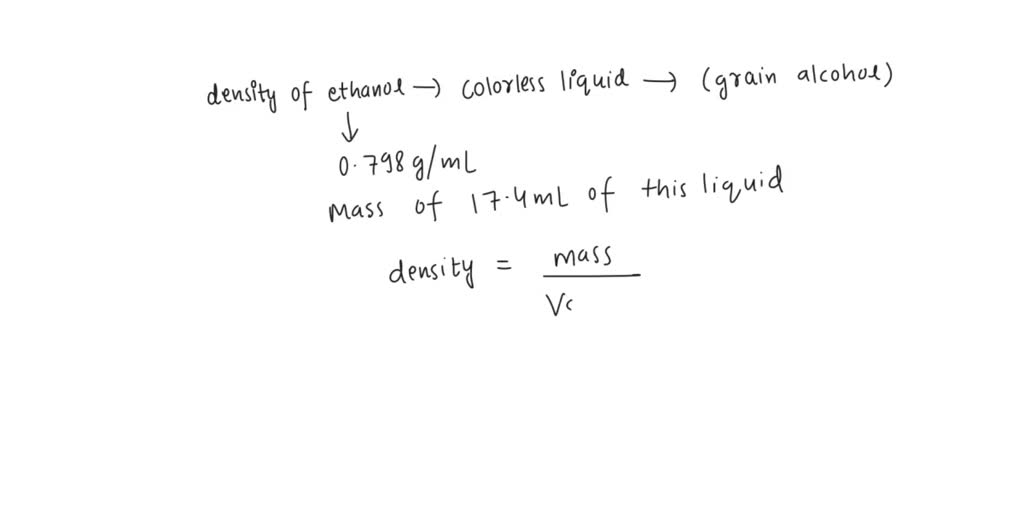 density of ethanol → colorless liquid → (grain alcohol)
↓
0.798 g/mL
Mass of 17.4mL of this liquid
density = mass
Vo